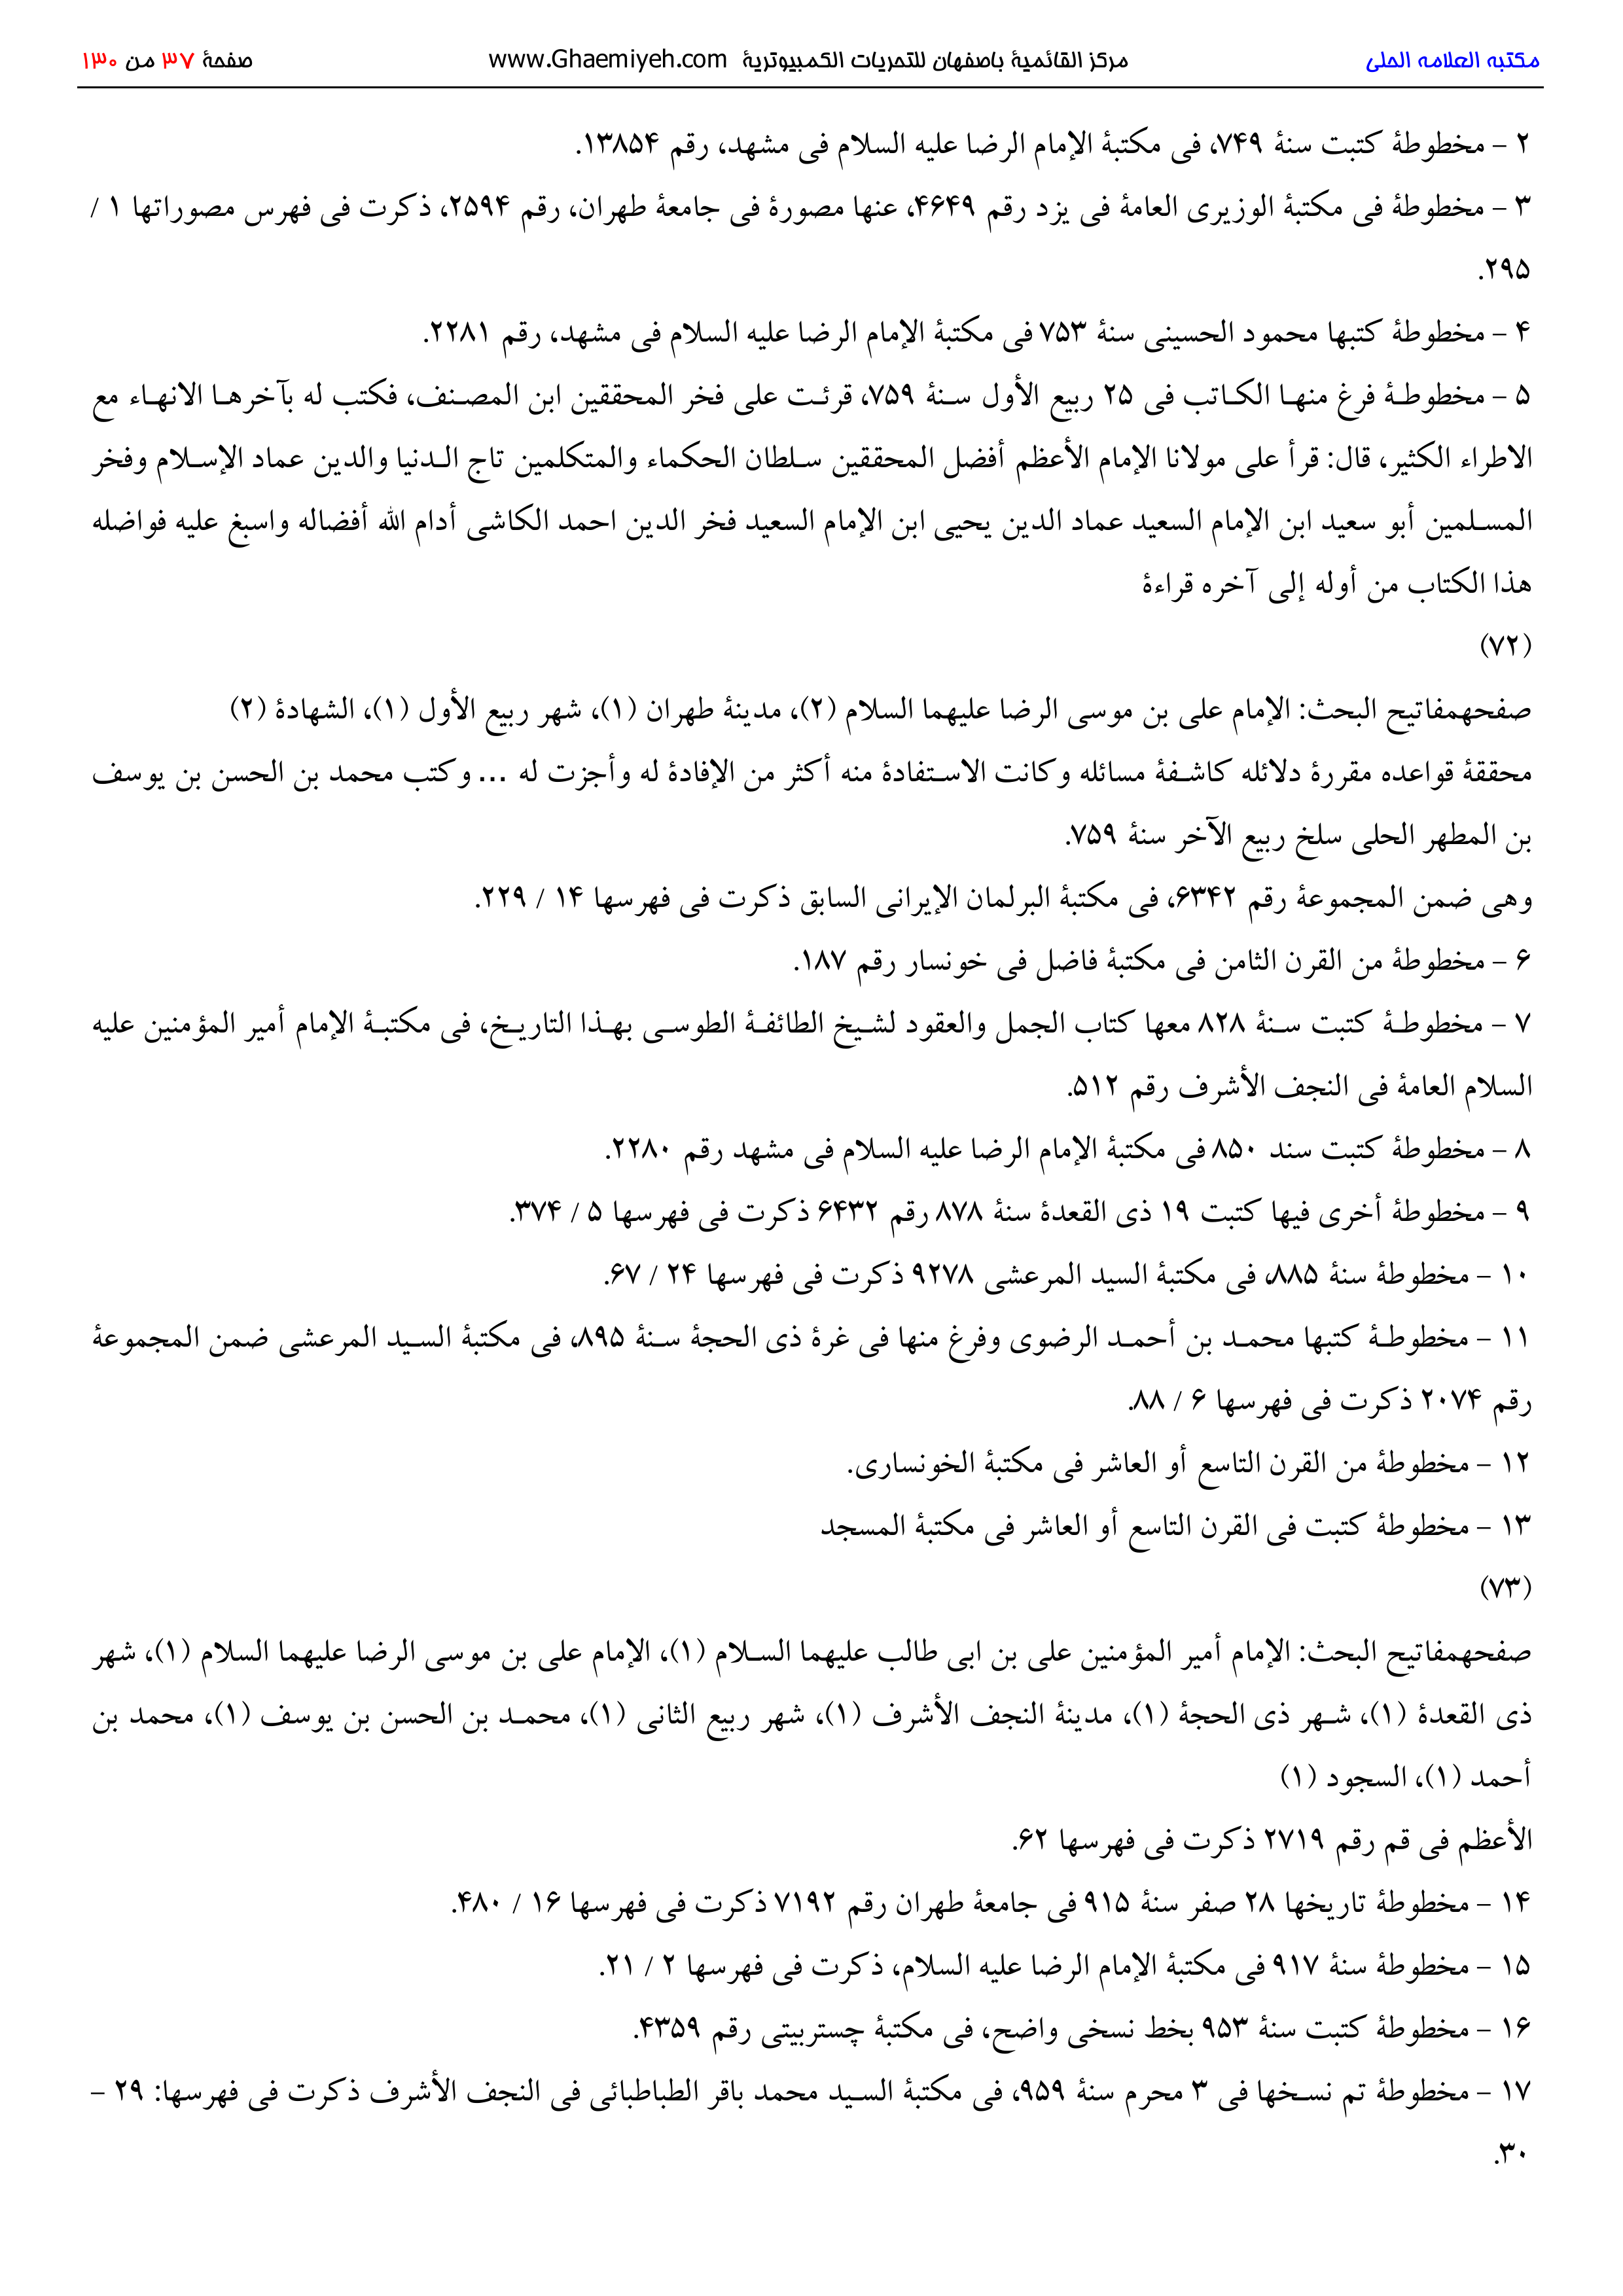 مكتبه العلامه الحلى مركز القائمیهٔ باصفهان للتحریات الکمبیوتریهٔ www.Ghaemiyeh.com صفحهٔ ۳۷ من ۱۳۰
۲ - مخطوطهٔ كتبت سنهٔ ۷۴۹، فى مكتبهٔ الإمام الرضا عليه السلام فى مشهد، رقم ۱۳۸۵۴.
۳ - مخطوطهٔ فى مكتبهٔ الوزيرى العامهٔ فى يزد رقم ۴۶۴۹، عنها مصورهٔ فى جامعهٔ طهران، رقم ۲۵۹۴، ذكرت فى فهرس مصوراتها ۱ /
۲۹۵.
۴ - مخطوطهٔ كتبها محمود الحسينى سنهٔ ۷۵۳ فى مكتبهٔ الإمام الرضا عليه السلام فى مشهد، رقم ۲۲۸۱.
۵ - مخطوطهٔ فرغ منها الكاتب فى ۲۵ ربيع الأول سنهٔ ۷۵۹، قرئت على فخر المحققين ابن المصنف، فكتب له بآخرها الانهاء مع
الاطراء الكثير، قال: قرأ على مولانا الإمام الأعظم أفضل المحققين سلطان الحكماء والمتكلمين تاج الدنيا والدين عماد الإسلام وفخر
المسلمين أبو سعيد ابن الإمام السعيد عماد الدين يحيى ابن الإمام السعيد فخر الدين احمد الكاشى أدام الله أفضاله واسبغ عليه فواضله
هذا الكتاب من أوله إلى آخره قراءهٔ
(۷۲)
صفحهمفاتيح البحث: الإمام على بن موسى الرضا عليهما السلام (۲)، مدينهٔ طهران (۱)، شهر ربيع الأول (۱)، الشهادهٔ (۲)
محققهٔ قواعده مقررهٔ دلائله كاشفهٔ مسائله وكانت الاستفادهٔ منه أكثر من الإفادهٔ له وأجزت له ... وكتب محمد بن الحسن بن يوسف
بن المطهر الحلى سلخ ربيع الآخر سنهٔ ۷۵۹.
وهى ضمن المجموعهٔ رقم ۶۳۴۲، فى مكتبهٔ البرلمان الإيرانى السابق ذكرت فى فهرسها ۱۴ / ۲۲۹.
۶ - مخطوطهٔ من القرن الثامن فى مكتبهٔ فاضل فى خونسار رقم ۱۸۷.
۷ - مخطوطهٔ كتبت سنهٔ ۸۲۸ معها كتاب الجمل والعقود لشيخ الطائفهٔ الطوسى بهذا التاريخ، فى مكتبهٔ الإمام أمير المؤمنين عليه
السلام العامهٔ فى النجف الأشرف رقم ۵۱۲.
۸ - مخطوطهٔ كتبت سند ۸۵۰ فى مكتبهٔ الإمام الرضا عليه السلام فى مشهد رقم ۲۲۸۰.
۹ - مخطوطهٔ أخرى فيها كتبت ۱۹ ذى القعدهٔ سنهٔ ۸۷۸ رقم ۶۴۳۲ ذكرت فى فهرسها ۵ / ۳۷۴.
۱۰ - مخطوطهٔ سنهٔ ۸۸۵، فى مكتبهٔ السيد المرعشى ۹۲۷۸ ذكرت فى فهرسها ۲۴ / ۶۷.
۱۱ - مخطوطهٔ كتبها محمد بن أحمد الرضوى وفرغ منها فى غرهٔ ذى الحجهٔ سنهٔ ۸۹۵، فى مكتبهٔ السيد المرعشى ضمن المجموعهٔ
رقم ۲۰۷۴ ذكرت فى فهرسها ۶ / ۸۸.
۱۲ - مخطوطهٔ من القرن التاسع أو العاشر فى مكتبهٔ الخونسارى.
۱۳ - مخطوطهٔ كتبت فى القرن التاسع أو العاشر فى مكتبهٔ المسجد
(۷۳)
صفحهمفاتيح البحث: الإمام أمير المؤمنين على بن ابى طالب عليهما السلام (۱)، الإمام على بن موسى الرضا عليهما السلام (۱)، شهر
ذى القعدهٔ (۱)، شهر ذى الحجهٔ (۱)، مدينهٔ النجف الأشرف (۱)، شهر ربيع الثانى (۱)، محمد بن الحسن بن يوسف (۱)، محمد بن
أحمد (۱)، السجود (۱)
الأعظم فى قم رقم ۲۷۱۹ ذكرت فى فهرسها ۶۲.
۱۴ - مخطوطهٔ تاريخها ۲۸ صفر سنهٔ ۹۱۵ فى جامعهٔ طهران رقم ۷۱۹۲ ذكرت فى فهرسها ۱۶ / ۴۸۰.
۱۵ - مخطوطهٔ سنهٔ ۹۱۷ فى مكتبهٔ الإمام الرضا عليه السلام، ذكرت فى فهرسها ۲ / ۲۱.
۱۶ - مخطوطهٔ كتبت سنهٔ ۹۵۳ بخط نسخى واضح، فى مكتبهٔ چستربيتى رقم ۴۳۵۹.
۱۷ - مخطوطهٔ تم نسخها فى ۳ محرم سنهٔ ۹۵۹، فى مكتبهٔ السيد محمد باقر الطباطبائى فى النجف الأشرف ذكرت فى فهرسها: ۲۹ -
۳۰.